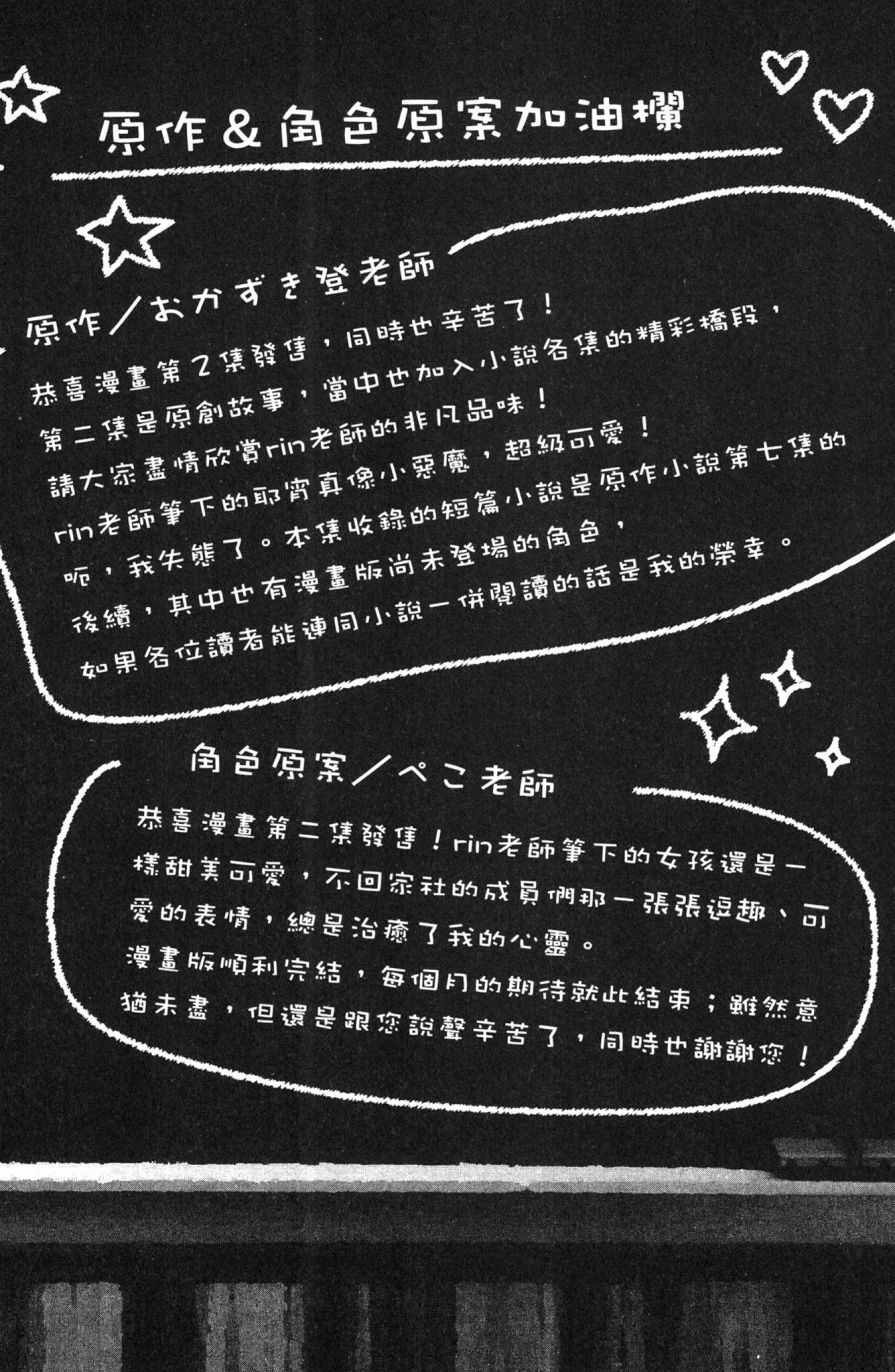 原作&角色原案加油欄
原作／おかずき登老師
恭喜漫畫第2集發售，同時也辛苦了！
第二集是原創故事，當中也加入小說各集的精彩橋段，
請大家盡情欣賞rin老師的非凡品味！
rin老師筆下的耶宵真像小惡魔，超級可愛！
呃，我失態了。本集收錄的短篇小說是原作小說第七集的
後續，其中也有漫畫版尚未登場的角色，
如果各位讀者能連同小說一併閱讀的話是我的榮幸。
角色原案／ぺこ老師
恭喜漫畫第二集發售！rin老師筆下的女孩還是一
樣甜美可愛，不回家社的成員們那一張張逗趣、可
愛的表情，總是治癒了我的心靈。
漫畫版順利完結，每個月的期待就此結束；雖然意
猶未盡，但還是跟您說聲辛苦了，同時也謝謝您！